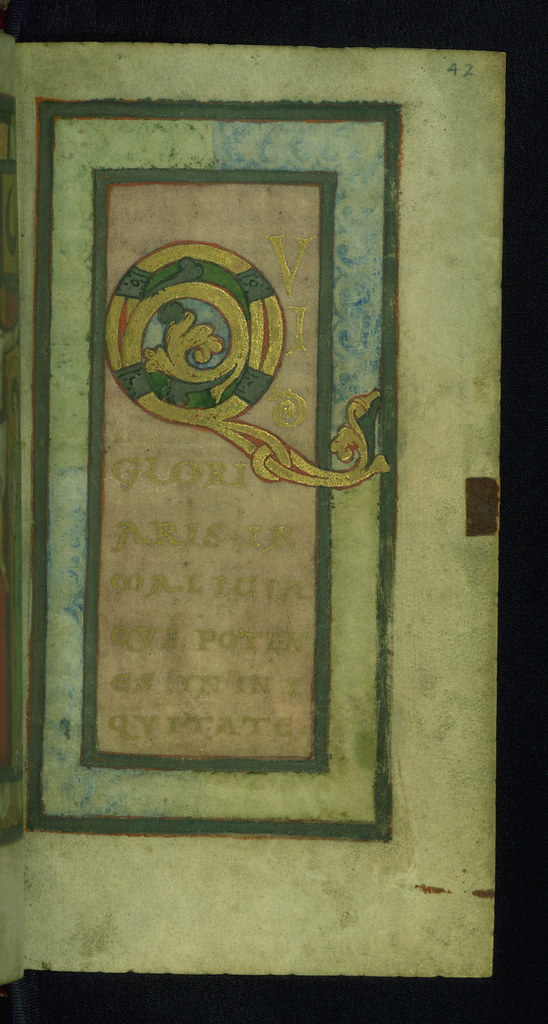 42
QVI
D
GLORI
ARIS IN
MALICIA
QVI POTEN
ES IN IN I
QVITATE